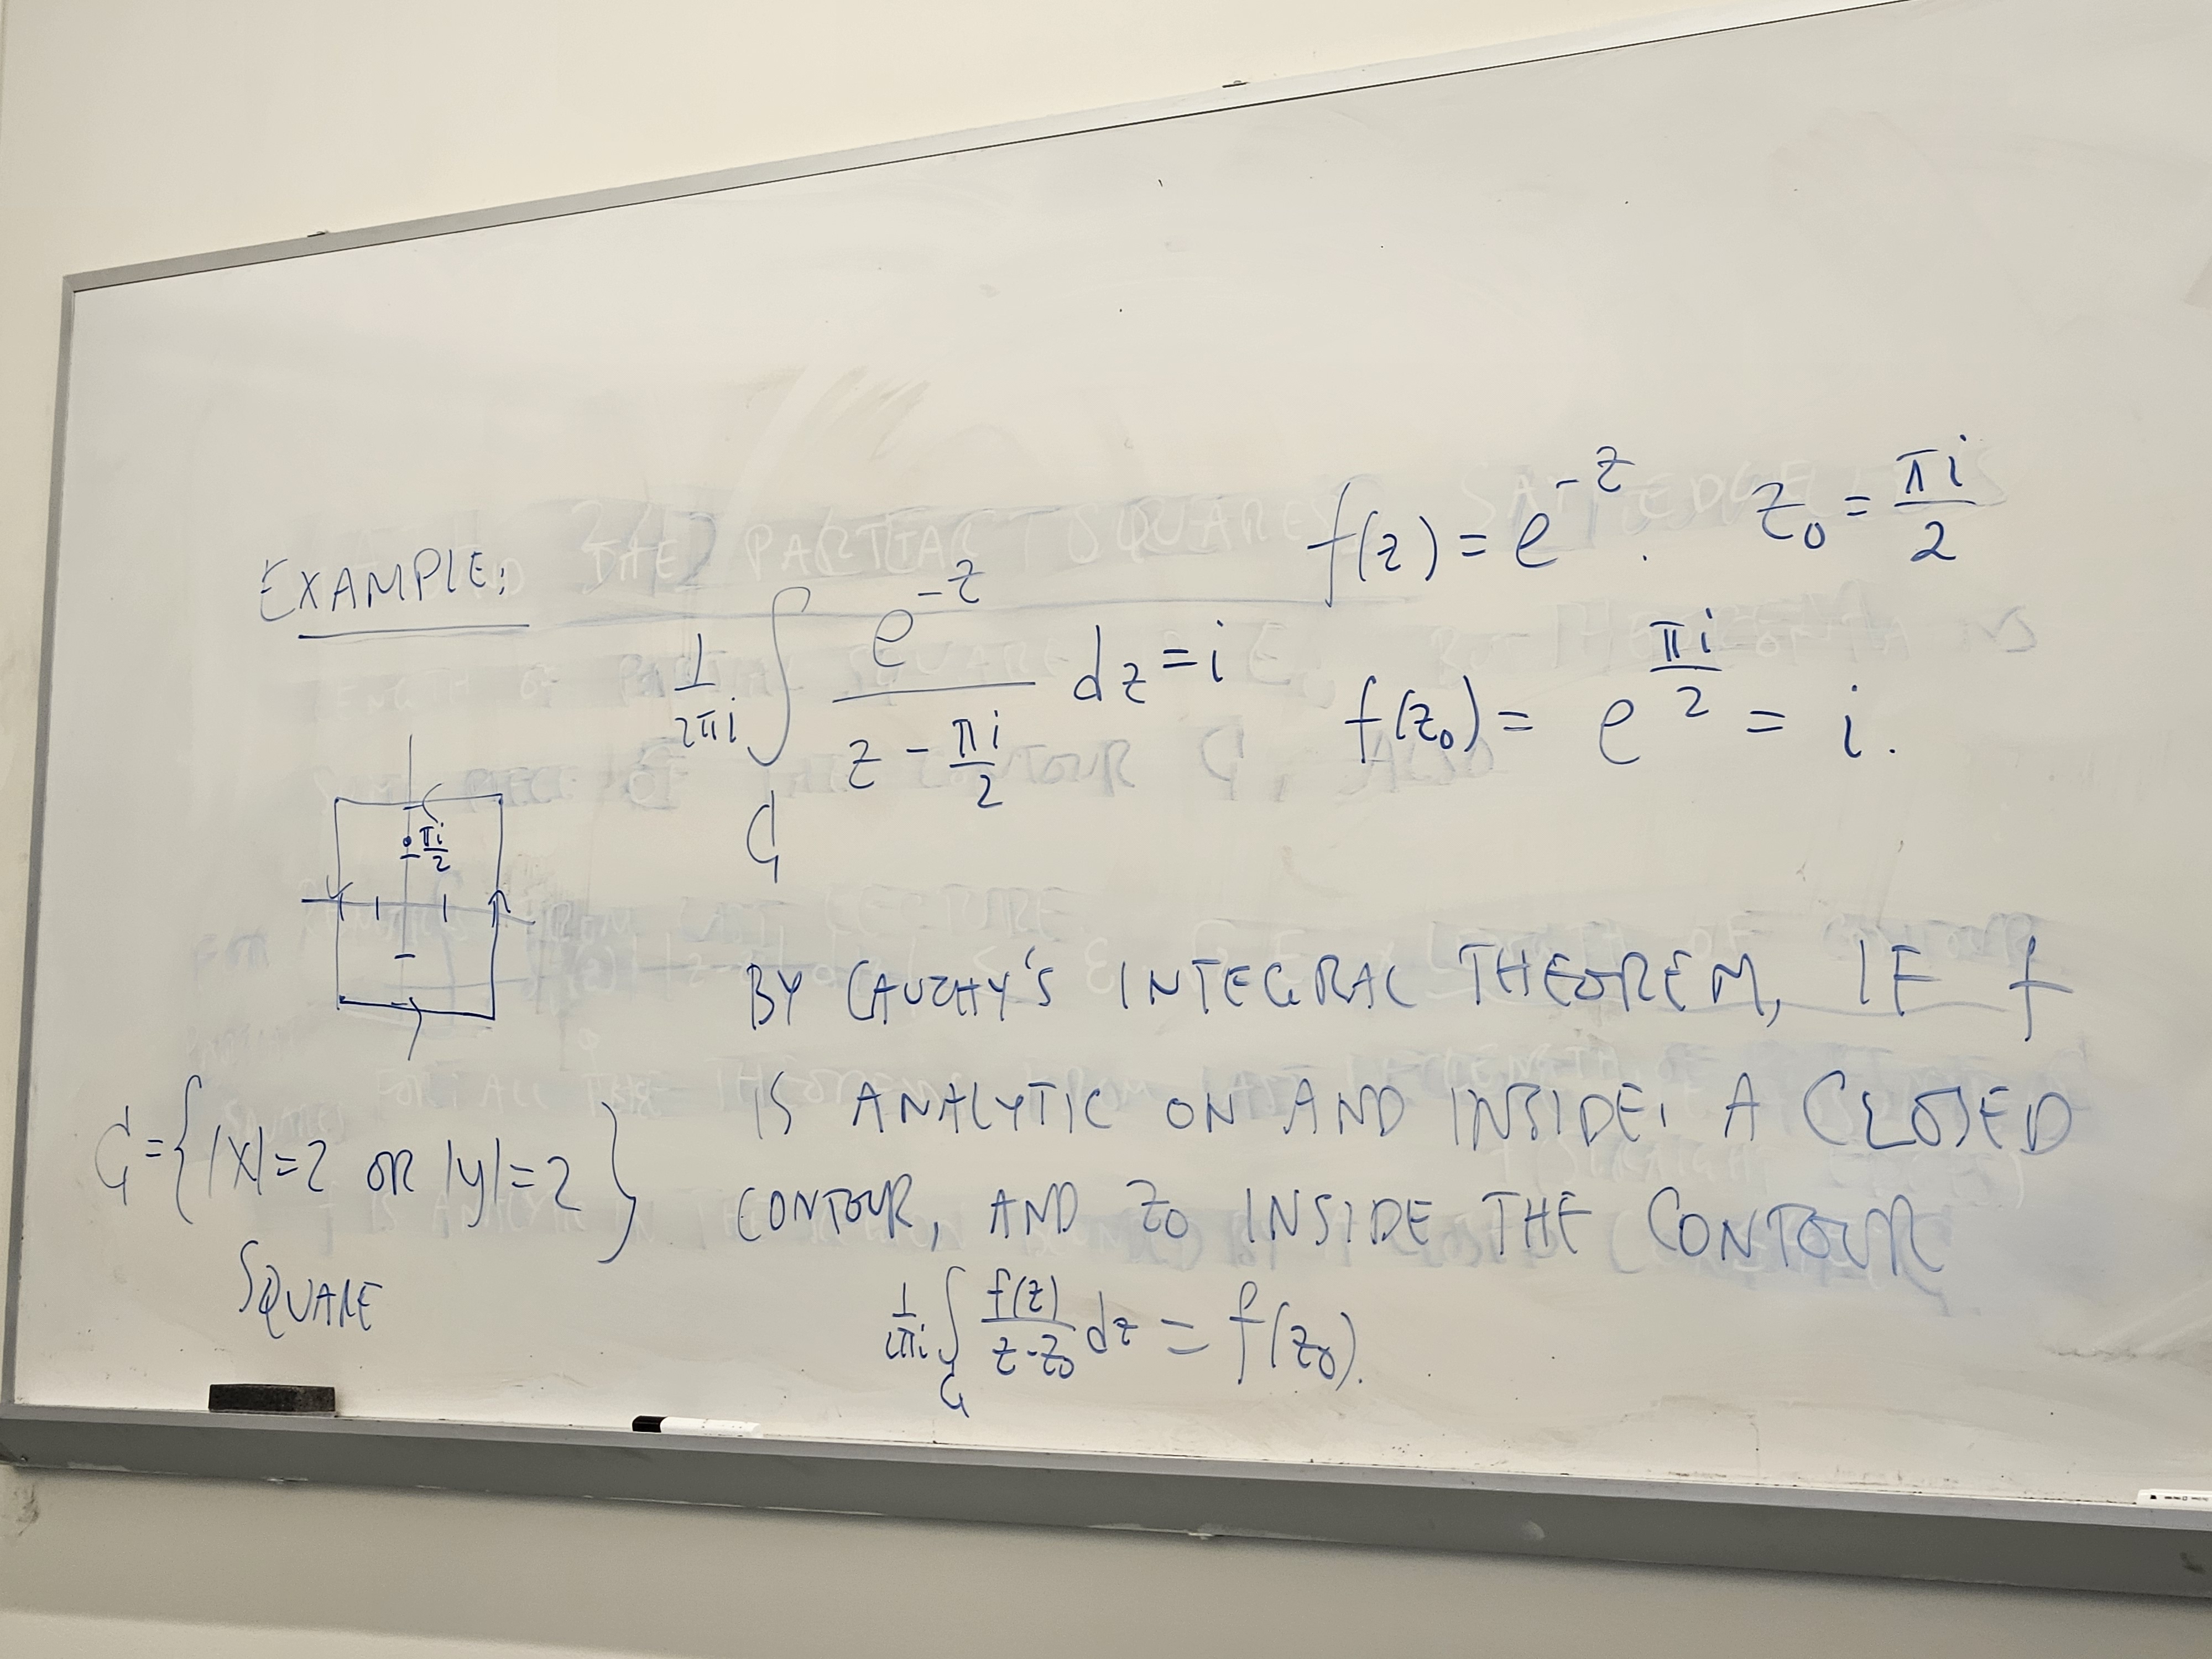 EXAMPLE:
1/2πi ∫_C e^{-z}/(z - πi/2) dz = i
f(z) = e^{-z}. z₀ = πi/2
f(z₀) = e^{πi/2} = i.
πi/2
C = {|x|=2 OR |y|=2}
SQUARE
BY CAUCHY'S INTEGRAL THEOREM, IF f
IS ANALYTIC ON AND INSIDE, A CLOSED
CONTOUR, AND z₀ INSIDE THE CONTOUR
1/2πi ∫_C f(z)/(z-z₀) dz = f(z₀).